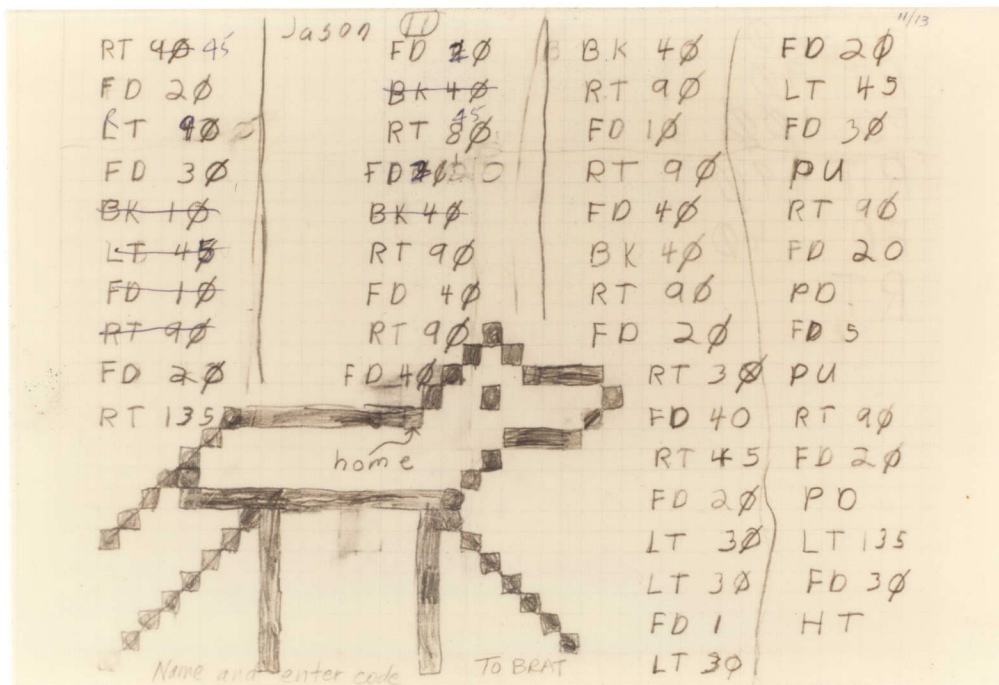 Jason 11
11/13
RT 90 45
FD 20
RT 90
FD 30
BK 10
LT 45
FD 10
RT 90
FD 20
RT 135
FD 20
BK 40
RT 80 45
FD
BK 40
RT 90
FD 40
RT 90
FD 40
home
BK 40
RT 90
FD 10
RT 90
FD 40
BK 40
RT 90
FD 20
RT 30
FD 40
RT 45
FD 20
LT 30
LT 30
FD 1
LT 30
FD 20
LT 45
FD 30
PU
RT 90
FD 20
PD
FD 5
PU
RT 90
FD 20
PD
LT 135
FD 30
HT
Name and enter code TO BRAT